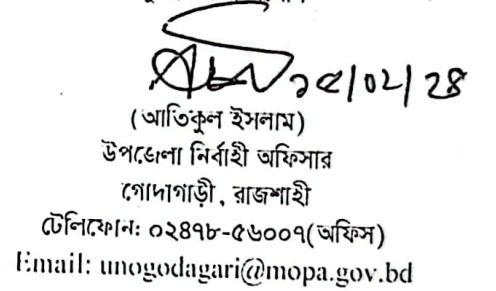 ১৫/০২/২৪
(আতিকুল ইসলাম)
উপজেলা নির্বাহী অফিসার
গোদাগাড়ী, রাজশাহী
টেলিফোন: ০২৪৭৮-৫৬০০৭(অফিস)
Email: unogodagari@mopa.gov.bd